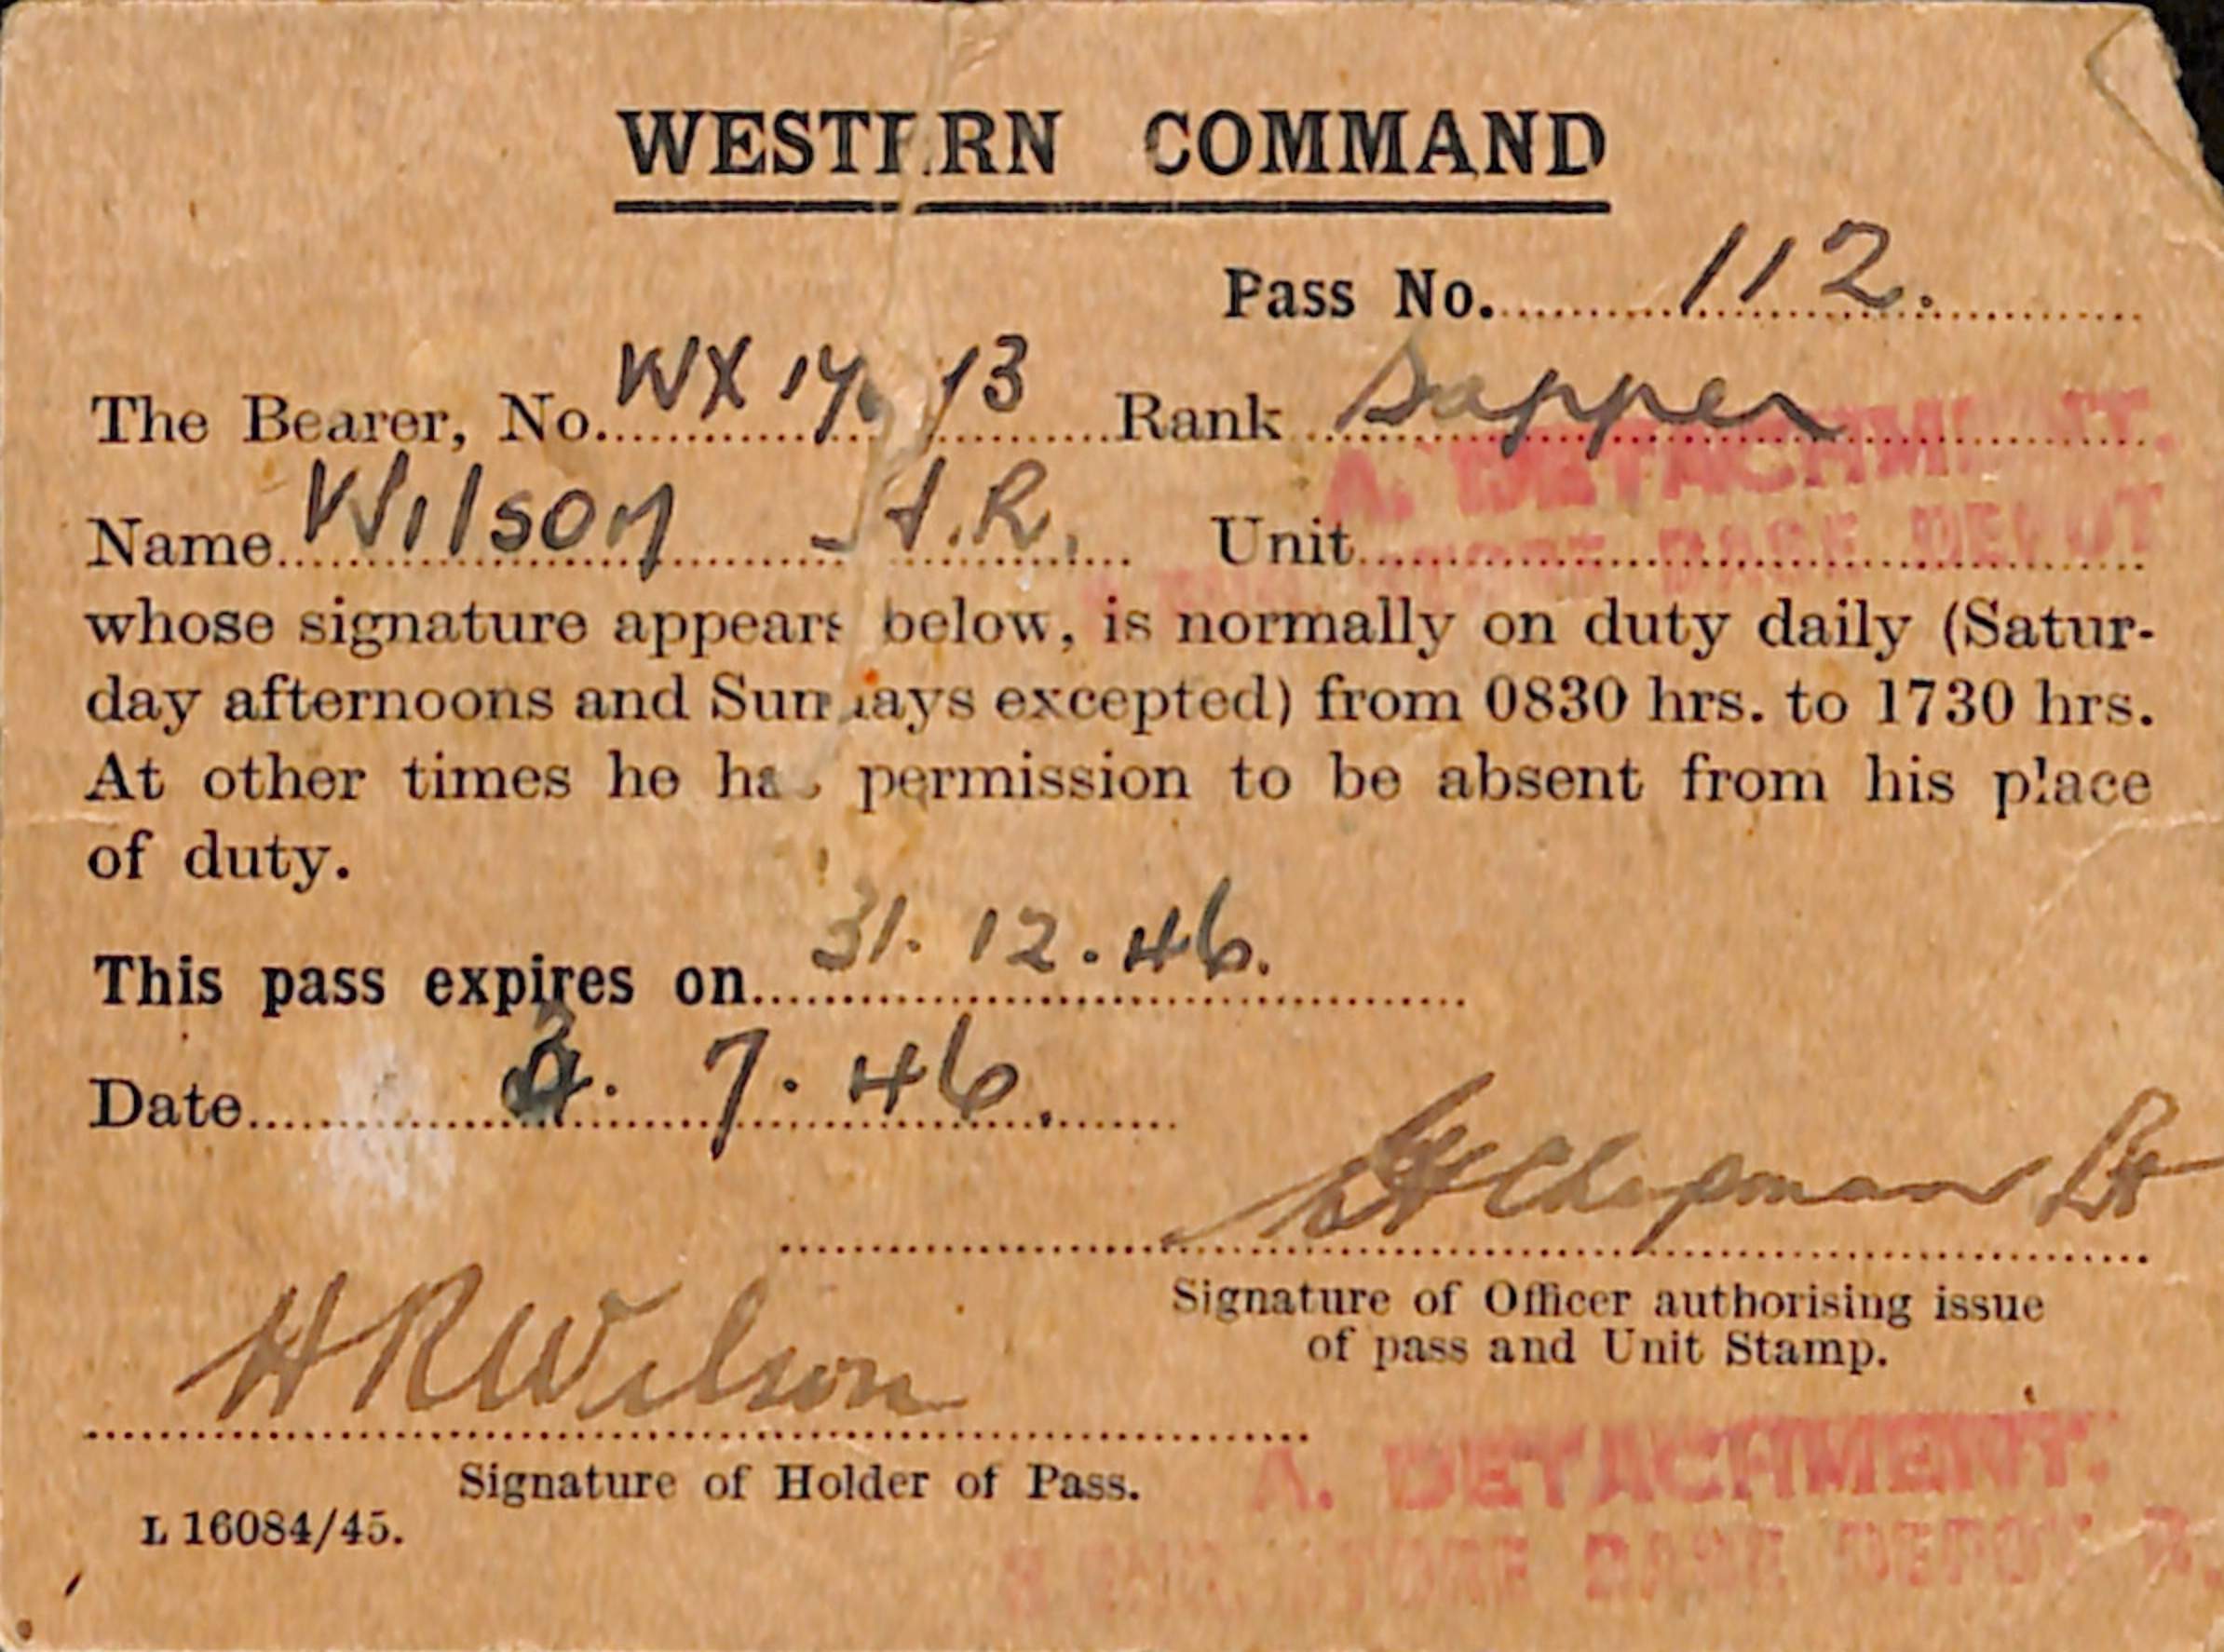 WESTERN COMMAND
Pass No. 112.
The Bearer, No. WX Rank Sapper
A. DETACHMENT.
Name Wilson H.R. Unit
BASE DEPOT
whose signature appears below, is normally on duty daily (Satur-
day afternoons and Sundays excepted) from 0830 hrs. to 1730 hrs.
At other times he has permission to be absent from his place
of duty.
This pass expires on 31.12.46.
Date 7.46.
Chapman Lt
Signature of Officer authorising issue
of pass and Unit Stamp.
H R Wilson
Signature of Holder of Pass.
A. DETACHMENT.
STORE BASE DEPOT
L 16084/45.